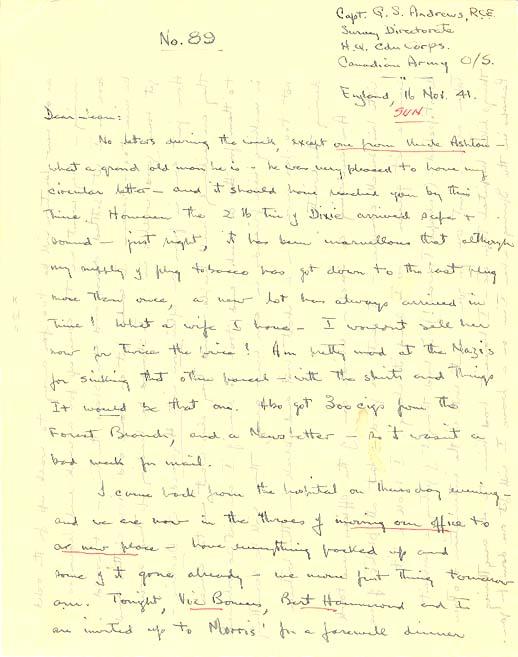 Capt. G. S. Andrews, RCE.
Survey Directorate
No. 89
H.Q. Cdn Corps.
Canadian Army O/S.
England, 16 Nov. 41.
SUN.
Dear Jean:
No letters during the week, except one from Uncle Ashton –
what a grand old man he is – he was very pleased to have my
circular letter – and it should have reached you by this
time. However the 2 lb tin of Dixie arrived safe +
sound – just right, it has been marvellous that although
my supply of plug tobacco has got down to the last plug
more than once, a new lot has always arrived in
time! What a wife I have – I wouldn't sell her
now for twice the price! Am pretty mad at the Nazis
for sinking that other parcel – with the shirts and things
It would be that one. Also got 300 cigs from the
Forest Branch, and a Newsletter – so it wasn't a
bad week for mail.
I came back from the hospital on Thursday evening –
and we are now in the throes of moving our office to
a new place – have everything packed up and
some of it gone already – we move first thing tomorrow
am. Tonight, Vic Bowers, Bert Hammond and I
are invited up to Morris' for a farewell dinner